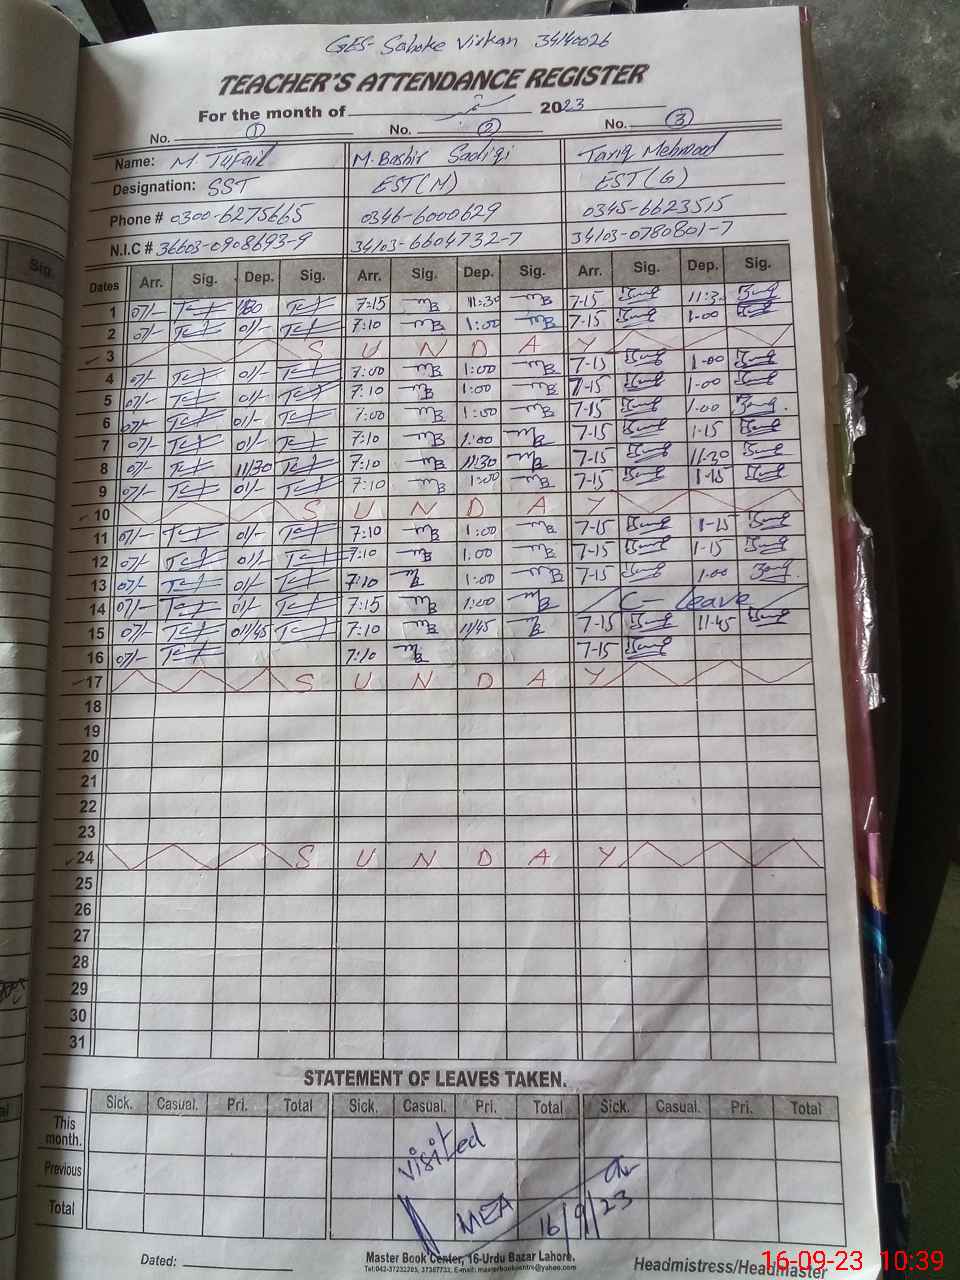 GES- Sahoke Virkan 34140026
TEACHER'S ATTENDANCE REGISTER
For the month of 2023
No. 1 No. 2 No. 3
Name: M. Tufail M. Bashir Sadiqi Tariq Mehmood
Designation: SST EST(M) EST(G)
Phone # 0300-6275665 0346-6000629 0345-6623515
N.I.C # 36603-0908693-9 34103-6604732-7 34103-0780801-7
Dates Arr. Sig. Dep. Sig. Arr. Sig. Dep. Sig. Arr. Sig. Dep. Sig.
1 07/- 7:15 11:30 7-15 11:30
2 07/- 01/- 7:10 1:00 7-15 1-00
3 S U N D A Y
4 07/- 01/- 7:00 1:00 7-15 1-00
5 07/- 01/- 7:10 1:00 7-15 1-00
6 07/- 01/- 7:00 1:00 7-15 1-00
7 07/- 01/- 7:10 1:00 7-15 1-15
8 07/- 11/30 7:10 11:30 7-15 11-30
9 07/- 01/- 7:10 1:00 7-15 1-15
10 S U N D A Y
11 07/- 01/- 7:10 1:00 7-15 1-15
12 07/- 01/- 7:10 1:00 7-15 1-15
13 07/- 01/- 7:10 1:00 7-15 1-00
14 07/- 01/- 7:15 1:00 C- Leave
15 07/- 01/45 7:10 11/45 7-15 11-45
16 07/- 7:10 7-15
17 S U N D A Y
18
19
20
21
22
23
24 S U N D A Y
25
26
27
28
29
30
31
STATEMENT OF LEAVES TAKEN.
Sick. Casual. Pri. Total Sick. Casual. Pri. Total Sick. Casual. Pri. Total
This month.
Previous
Total
visited
MEA 16/9/23
Dated: Master Book Center, 16-Urdu Bazar Lahore. Headmistress/Headmaster
Tel:042-37232205, 37367732, E-mail: masterbookcentre@yahoo.com
16-09-23 10:39